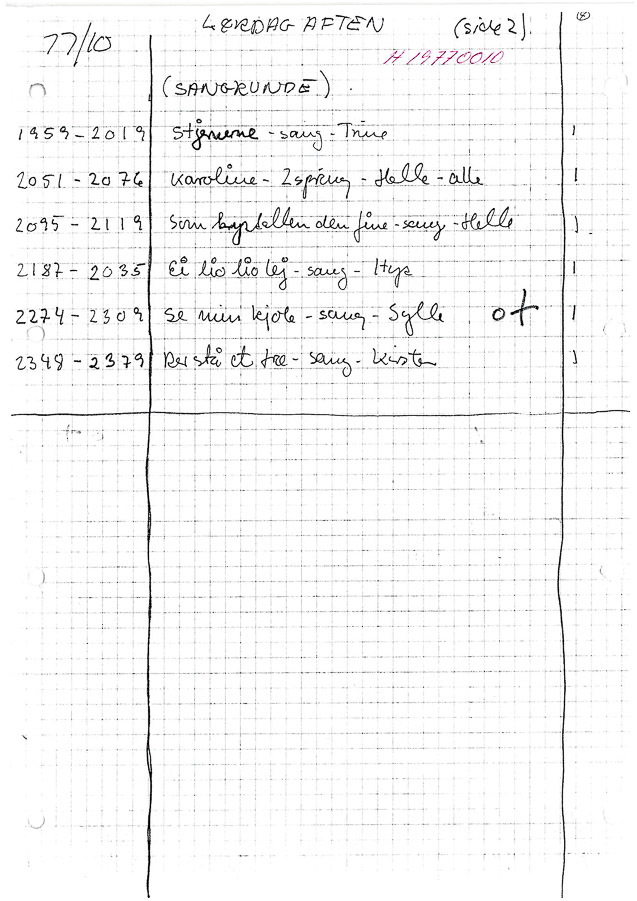 LØRDAG AFTEN (side 2). (8)
77/10
H 19770010
(SANGRUNDE).
1959-2019 Stjernerne - sang - Trine 1
2051-2076 Karoline - 2spreng - Helle - alle 1
2095-2119 Som krystallen den fine - sang - Helle 1.
2187-2035 Ei lio lio lej - sang - 1
2274-2309 Se min kjole - sang - Sylle ot 1
2348-2379 Der stå et træ - sang - Kirsten 1